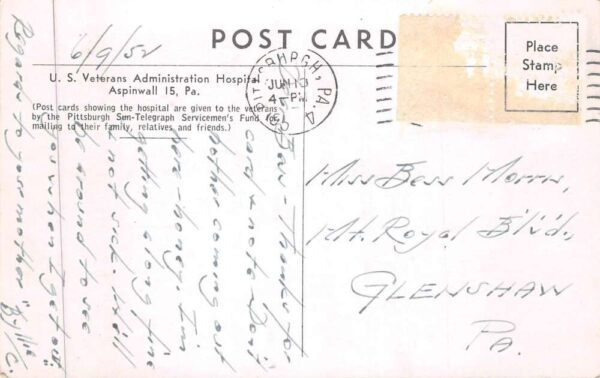 POST CARD
6/9/52
U. S. Veterans Administration Hospital
Aspinwall 15, Pa.
(Post cards showing the hospital are given to the veterans
by the Pittsburgh Sun-Telegraph Servicemen's Fund for
mailing to their family, relatives and friends.)
PITTSBURGH, PA. 4
JUN 10
4 - PM
Place
Stamp
Here
Miss Bess Morris,
Mt. Royal Blvd.,
GLENSHAW
PA.
Thanks for
card & note. Don't
bother coming out
here - honey, I'm
getting along fine
& not sick. Will
be around to see
you when I get out.
Regards to your mother